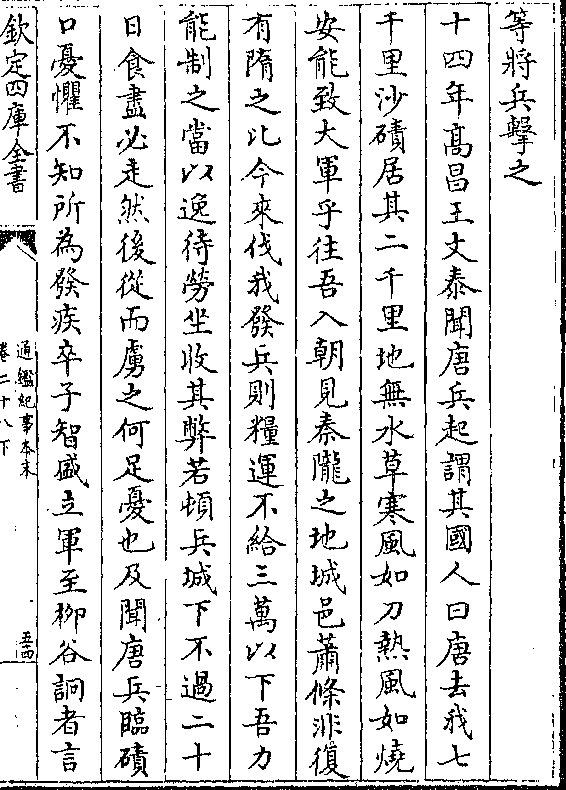 等將兵擊之
十四年高昌王文泰聞唐兵起謂其國人曰唐去我七
千里沙磧居其二千里地無水草寒風如刀熱風如燒
安能致大軍乎往吾入朝見秦隴之地城邑蕭條非復
有隋之比今來伐我發兵則糧運不給三萬以下吾力
能制之當以逸待勞坐收其弊若頓兵城下不過二十
日食盡必走然後從而虜之何足憂也及聞唐兵臨磧
口憂懼不知所為發疾卒子智盛立軍至柳谷詗者言
欽定四庫全書
通鑑紀事本末
卷二十八下
五十四